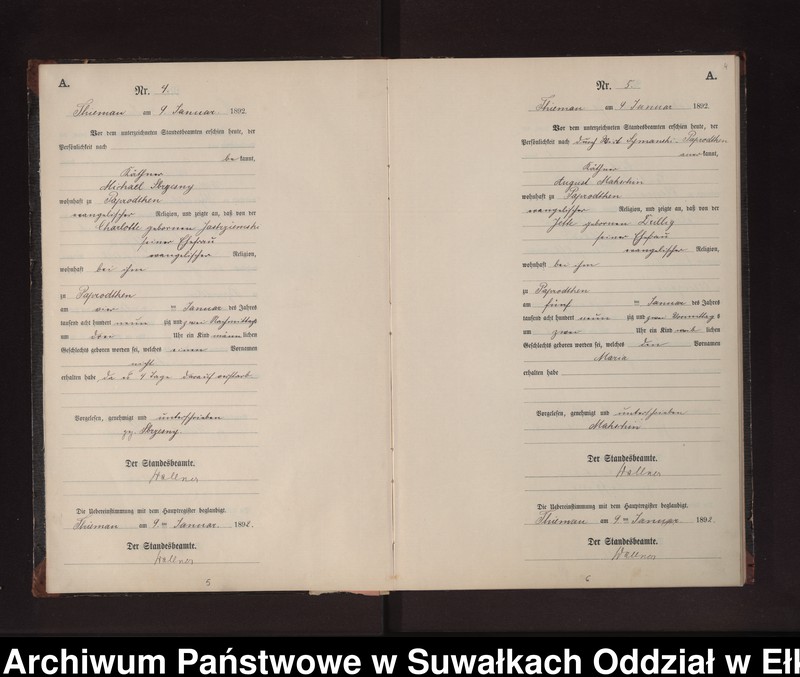 A.
Nr. 4.
Thieman am 9 Januar 1892.
Vor dem unterzeichneten Standesbeamten erschien heute, der
Persönlichkeit nach
be kannt,
Käthner
Michael
wohnhaft zu Paprodtken
evangelischer Religion, und zeigte an, daß von der
Charlotte gebornen
seiner Ehefrau
evangelischer Religion,
wohnhaft bei ihm
zu Paprodtken
am vier ten Januar des Jahres
tausend acht hundert neun zig und zwei Nachmittags
um drei Uhr ein Kind männ lichen
Geschlechts geboren worden sei, welches einen Vornamen
nicht
erhalten habe da es 4 Tage darauf verstarb
Vorgelesen, genehmigt und unterschrieben
gz.
Der Standesbeamte.
Die Uebereinstimmung mit dem Hauptregister beglaubigt.
Thieman am 9. ten Januar 1892.
Der Standesbeamte.
5
A.
Nr. 5.
Thieman am 9 Januar 1892.
Vor dem unterzeichneten Standesbeamten erschien heute, der
Persönlichkeit nach durch Paprodtken
aner kannt,
Käthner
August
wohnhaft zu Paprodtken
evangelischer Religion, und zeigte an, daß von der
gebornen
seiner Ehefrau
evangelischer Religion,
wohnhaft bei ihm
zu Paprodtken
am fünf ten Januar des Jahres
tausend acht hundert neun zig und zwei Vormittag s
um zwei Uhr ein Kind weib lichen
Geschlechts geboren worden sei, welches den Vornamen
Maria
erhalten habe
Vorgelesen, genehmigt und unterschrieben
Der Standesbeamte.
Die Uebereinstimmung mit dem Hauptregister beglaubigt.
Thieman am 9 ten Januar 1892.
Der Standesbeamte.
6
Archiwum Państwowe w Suwałkach Oddział w Ełk